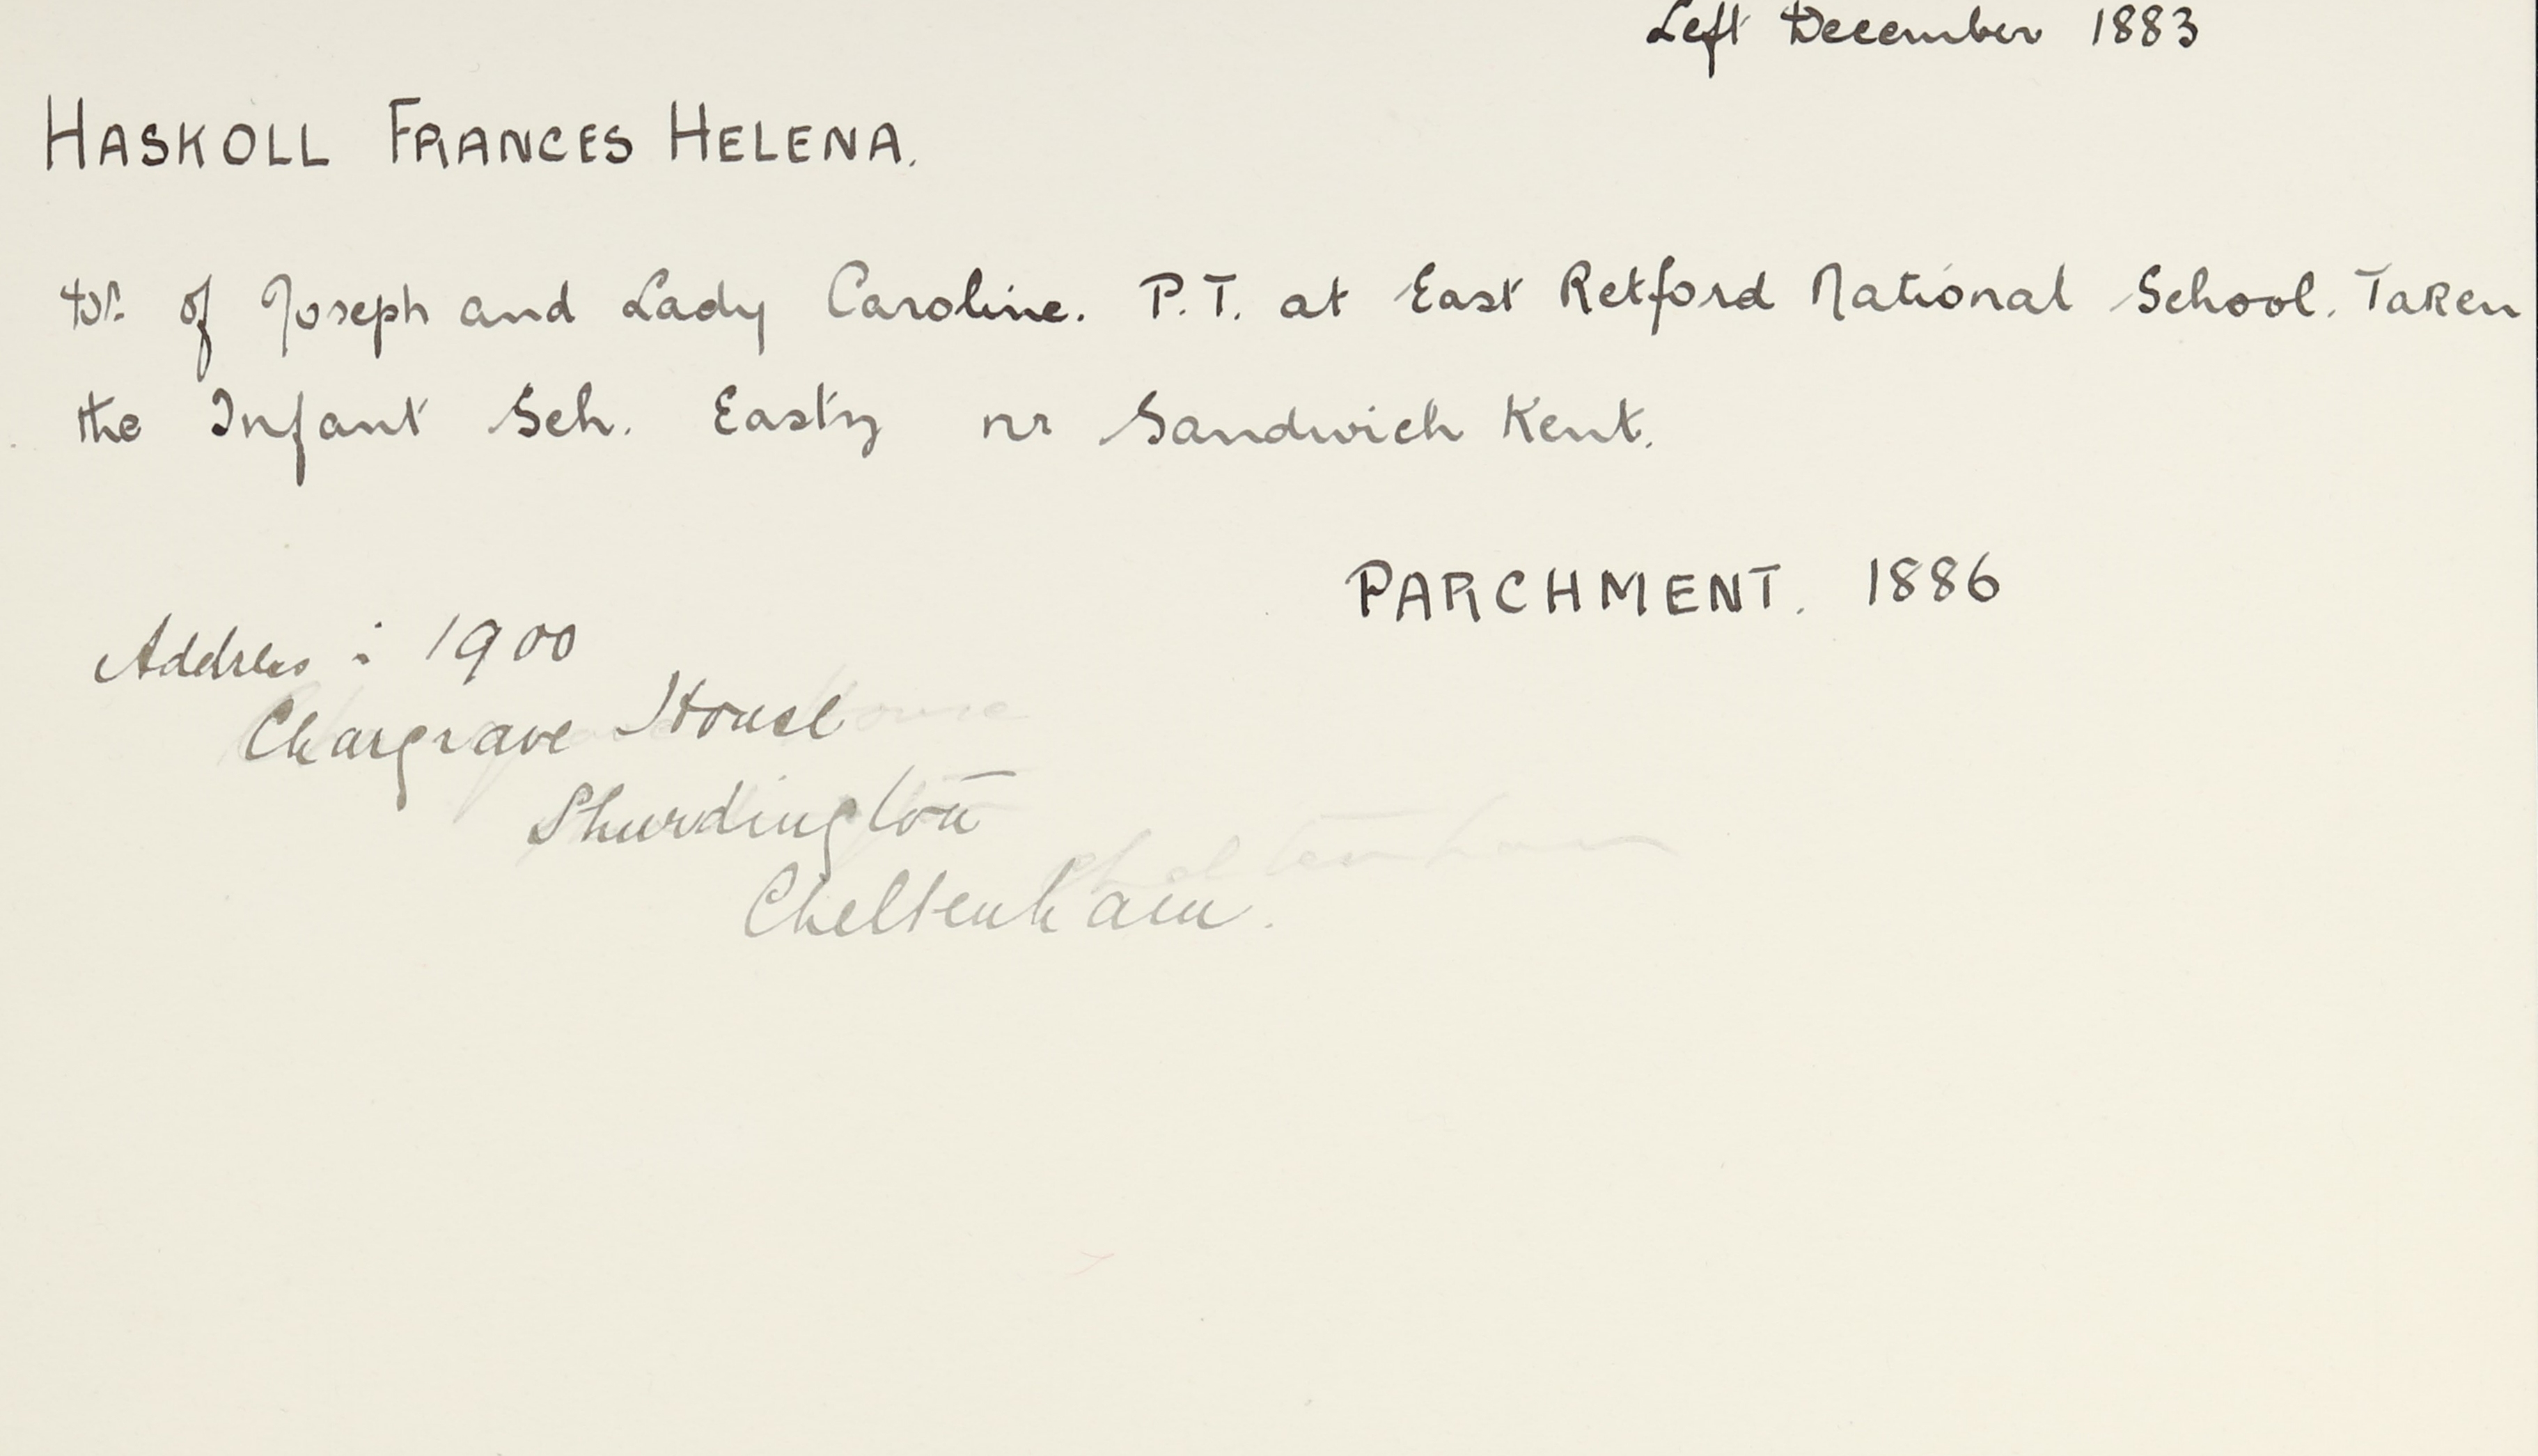 Left December 1883
HASKOLL FRANCES HELENA.
of Joseph and Lady Caroline. P.T. at East Retford National School. Taken
the Infant Sch. Eastry nr Sandwich Kent.
PARCHMENT. 1886
Address : 1900
Chargrave House
Shurdington
Cheltenham.